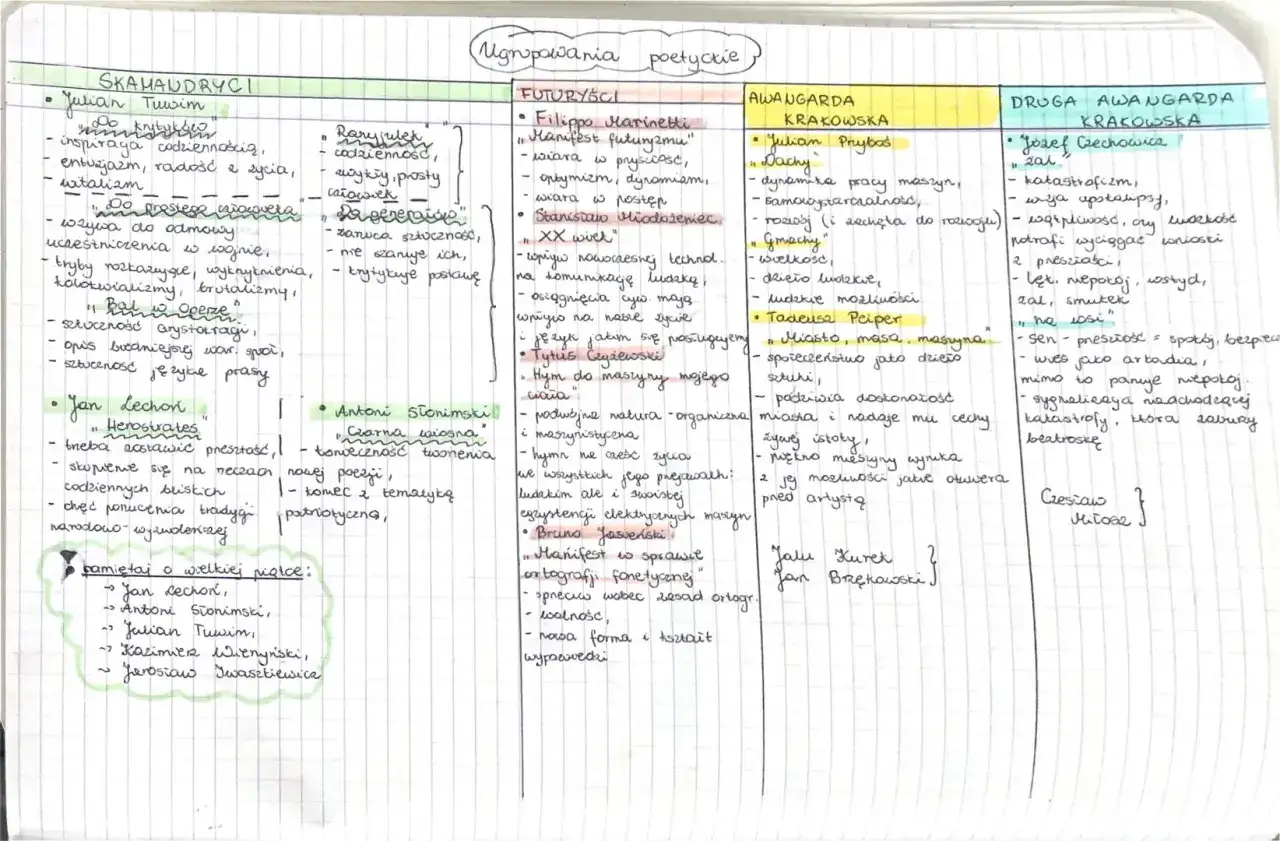 Ugrupowania poetyckie
SKAMANDRYCI
• Julian Tuwim
"Do krytyków"
- inspiracja codziennością,
- entuzjazm, radość z życia,
- witalizm
"Ranyjulek"
- codzienność,
- zwykły, prosty
człowiek
"Do prostego człowieka"
- wzywa do odmowy
uczestniczenia w wojnie,
- tryby rozkazujące, wykrzyknienia,
kolokwializmy, brutalizmy,
"Do generałów"
- zarzuca sztuczność,
- nie szanuje ich,
- krytykuje postawę
"Bal w Operze"
- sztuczność arystokracji,
- opis biedniejszej war. społ,
- sztuczność języka prasy
• Jan Lechoń
"Herostrates"
- trzeba zostawić przeszłość,
- skupienie się na rzeczach
codziennych bliskich
- chęć porzucenia tradycji
narodowo-wyzwoleńczej
• Antoni Słonimski
"Czarna wiosna"
- konieczność tworzenia
nowej poezji,
- koniec z tematyką
patriotyczną,
pamiętaj o wielkiej piątce:
→ Jan Lechoń,
→ Antoni Słonimski,
→ Julian Tuwim,
→ Kazimierz Wierzyński,
→ Jarosław Iwaszkiewicz
FUTURYŚCI
• Filippo Marinetti
"Manifest futuryzmu"
- wiara w przyszłość,
- optymizm, dynamizm,
- wiara w postęp
• Stanisław Młodożeniec
"XX wiek"
- wpływ nowoczesnej technol.
na komunikację ludzką,
- osiągnięcia cyw. mają
wpływ na nasze życie
i język jakim się posługujemy
• Tytus Czyżewski
"Hymn do maszyny mojego
ciała"
- podwójna natura - organiczna
i maszynistyczna
- hymn na cześć życia
we wszystkich jego przejawach:
ludzkim ale i swoistej
egzystencji elektrycznych maszyn
• Bruno Jasieński
"Manifest w sprawie
ortografji fonetycznej"
- sprzeciw wobec zasad ortogr.
- wolność,
- nowa forma i kształt
wypowiedzi
AWANGARDA
KRAKOWSKA
• Julian Przyboś
"Dachy"
- dynamika pracy maszyn,
- samowystarczalność,
- rozwój (i zachęta do rozwoju)
"Gmachy"
- wielkość,
- dzieło ludzkie,
- ludzkie możliwości
• Tadeusz Peiper
"Miasto, masa, maszyna"
- społeczeństwo jako dzieło
sztuki,
- podziwia doskonałość
miasta i nadaje mu cechy
żywej istoty,
- piękno maszyny wynika
z jej możliwości jakie otwiera
przed artystą
Jalu Kurek
Jan Brzękowski
DRUGA AWANGARDA
KRAKOWSKA
• Józef Czechowicz
"żal"
- katastrofizm,
- wizja apokalipsy,
- wątpliwość, czy ludzkość
potrafi wyciągać wnioski
z przeszłości,
- lęk, niepokój, wstyd,
żal, smutek
"na wsi"
- sen - przeszłość = spokój, bezpiecz
- wieś jako arkadia,
mimo to panuje niepokój.
- sygnalizacja nadchodzącej
katastrofy, która zaburzy
beztroskę
Czesław
Miłosz